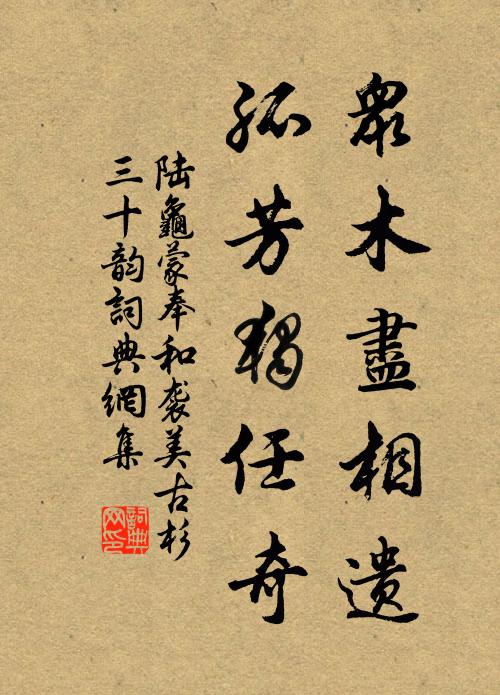 眾木盡相遺
孤芳獨任奇
陆龜蒙奉和袭美古杉
三十韵詞典網集
詞典網印